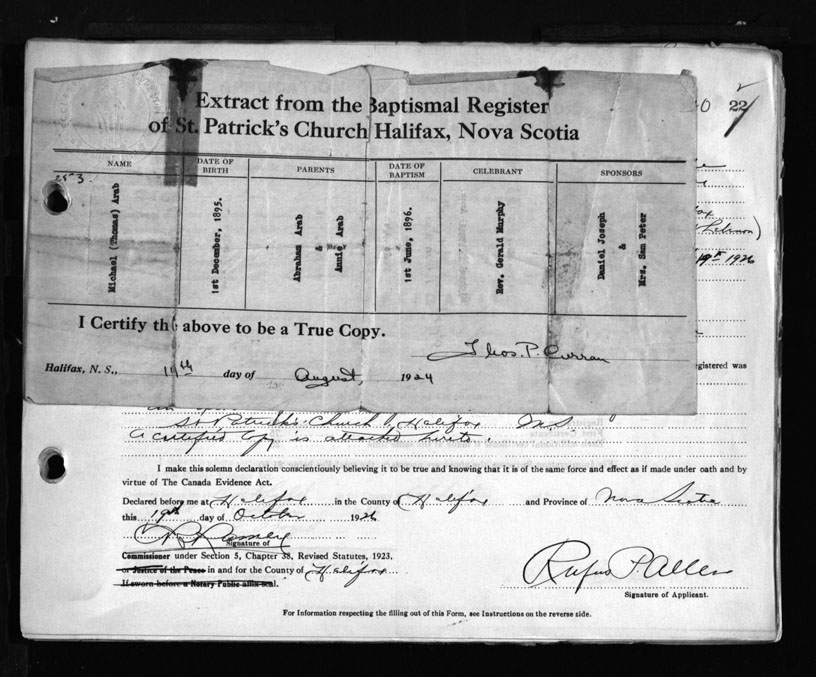 Extract from the Baptismal Register
of St. Patrick's Church Halifax, Nova Scotia
0 22
NAME
DATE OF BIRTH
PARENTS
DATE OF BAPTISM
CELEBRANT
SPONSORS
Michael (Thomas) Arab
1st December, 1895.
Abraham Arab
&
Annie Arab
1st June, 1896.
Rev. Gerald Murphy
Daniel Joseph
&
Mrs. Sam Peter
Lebanon)
19th 1926
I Certify the above to be a True Copy.
Thos. P. Curran
Halifax, N. S., 14th day of August, 1924
registered was
St Patrick's Church Halifax N.S.
A certified copy is attached hereto.
I make this solemn declaration conscientiously believing it to be true and knowing that it is of the same force and effect as if made under oath and by
virtue of The Canada Evidence Act.
Declared before me at Halifax in the County of Halifax and Province of Nova Scotia
this 19th day of October 1926
Signature of
Commissioner under Section 5, Chapter 38, Revised Statutes, 1923.
or Justice of the Peace in and for the County of Halifax
If sworn before a Notary Public affix seal.
Rufus P. Allen
Signature of Applicant.
For Information respecting the filling out of this Form, see Instructions on the reverse side.